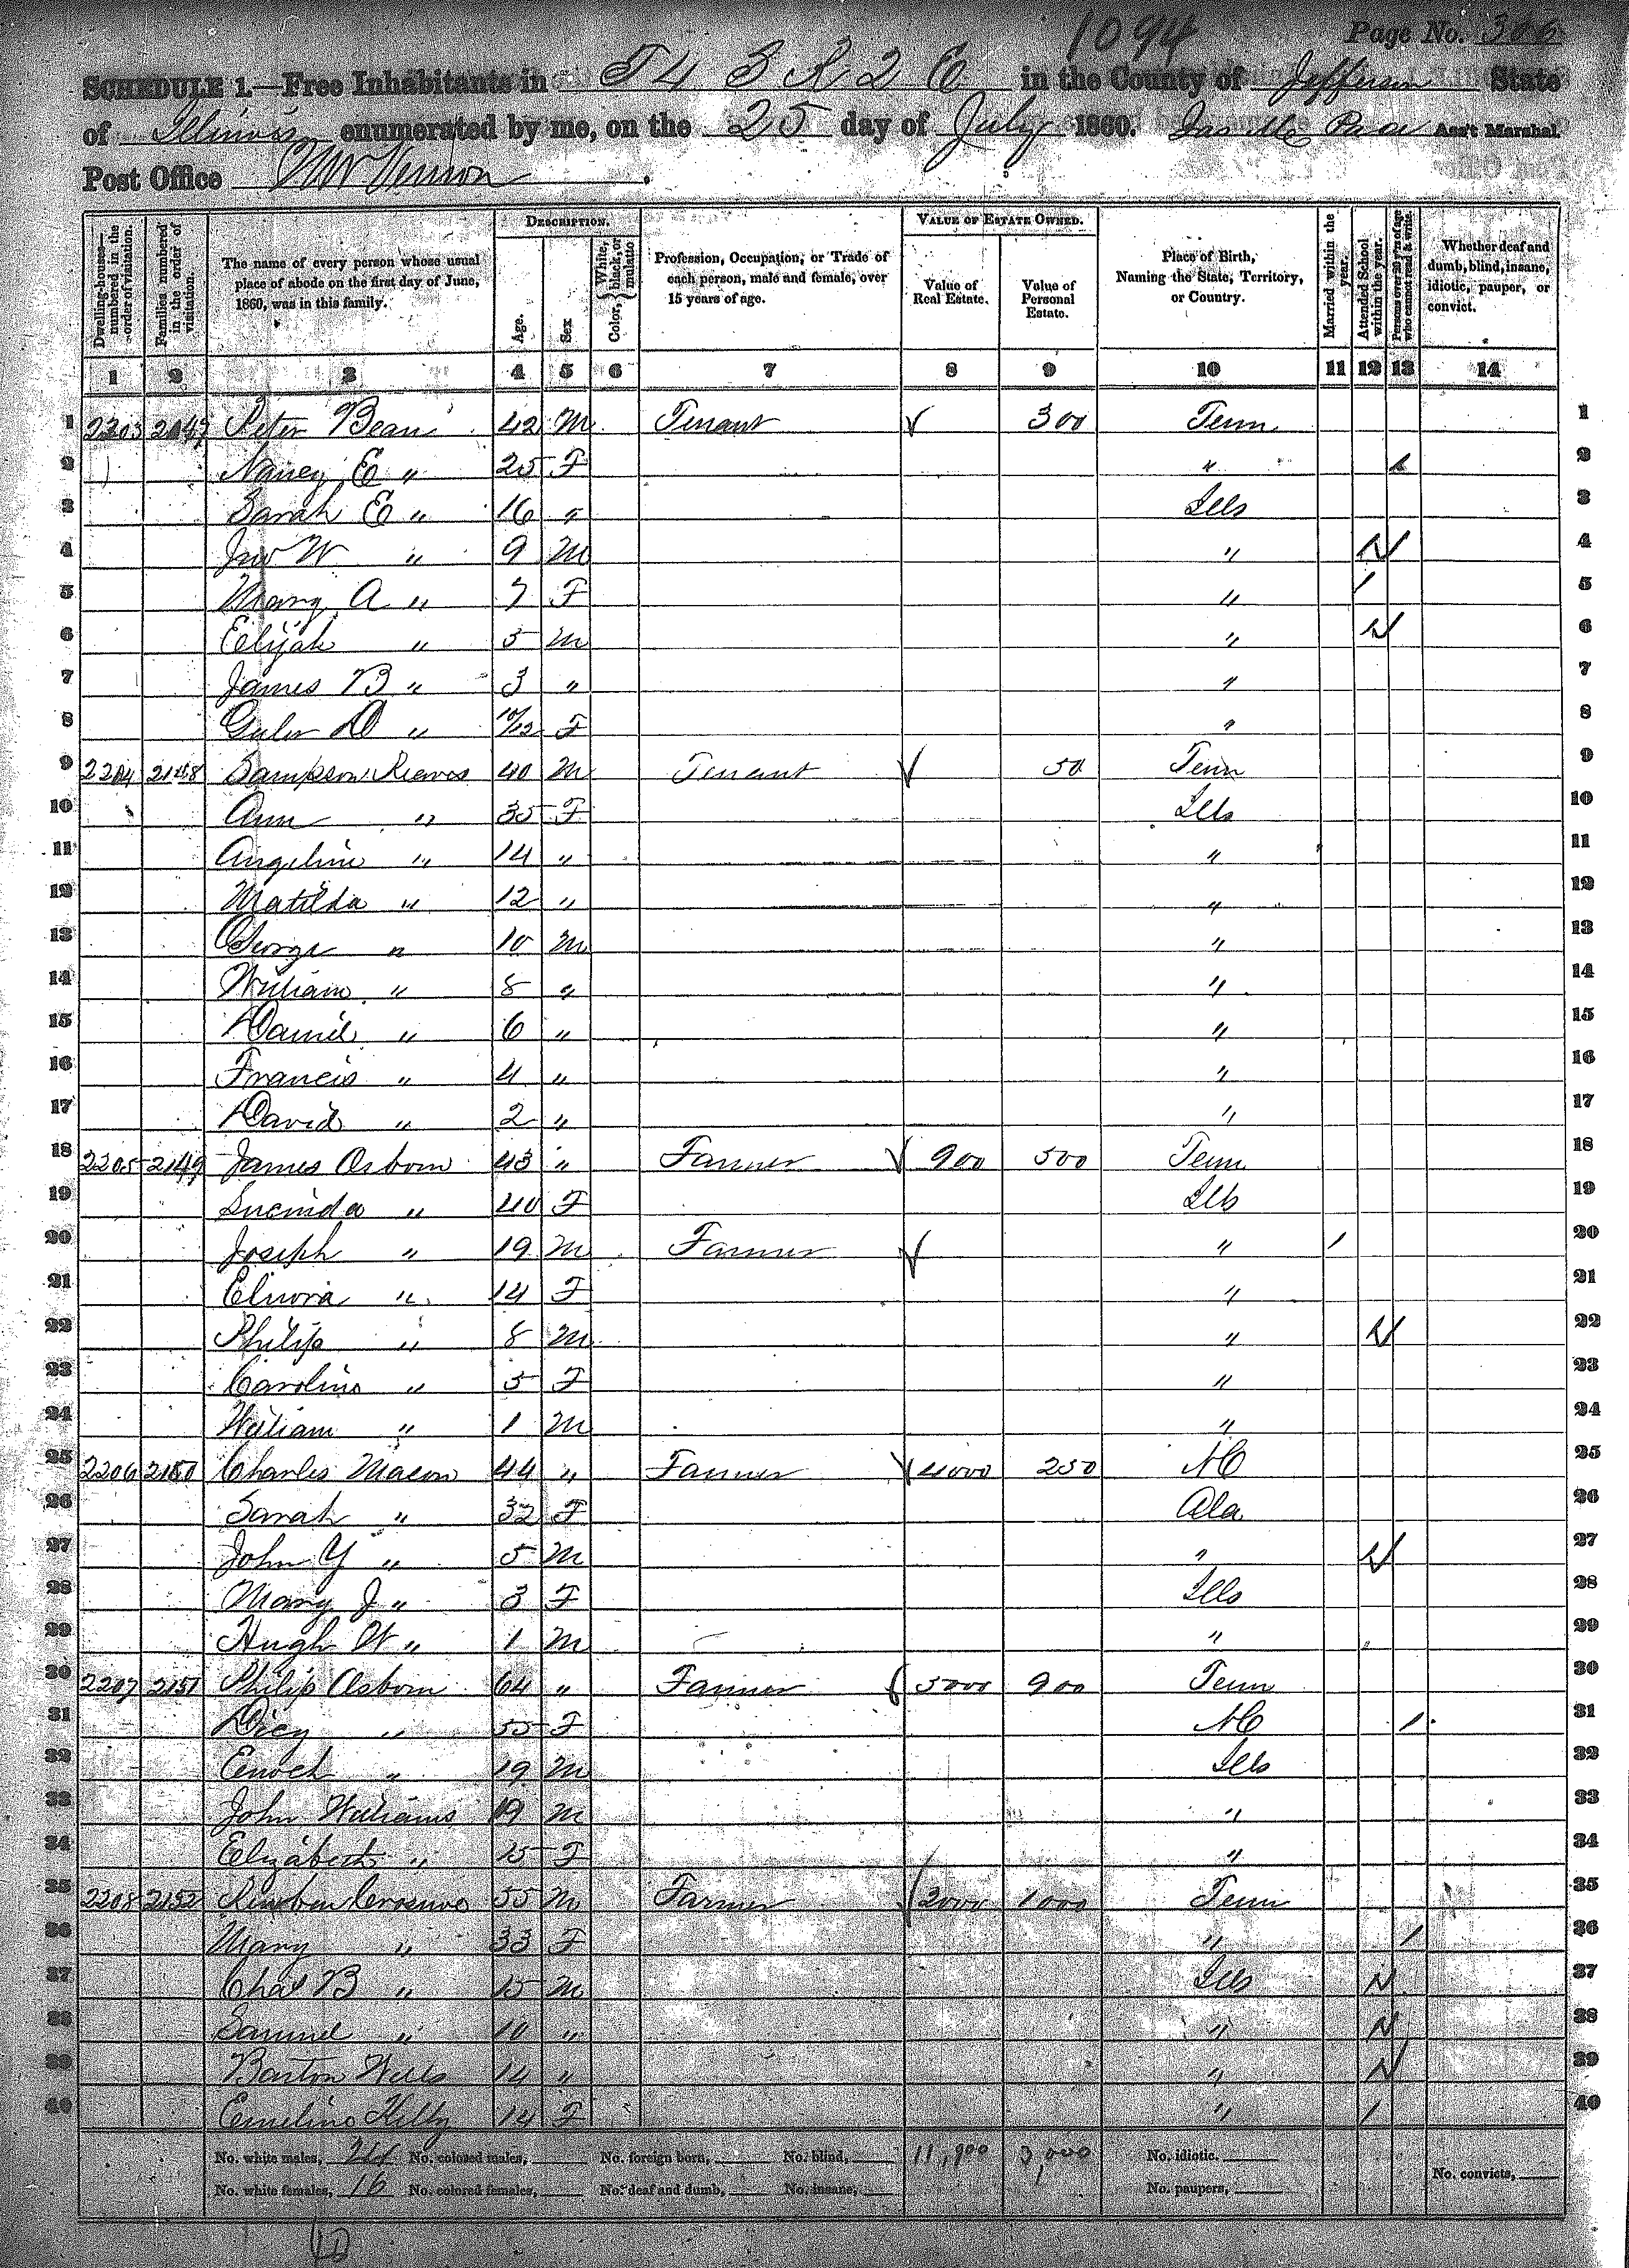 1094 Page No. 306
SCHEDULE 1.—Free Inhabitants in T 4 S R 2 E in the County of Jefferson State
of Illinois enumerated by me, on the 25 day of July 1860. Jas Mc Pace Ass't Marshal.
Post Office Mt Vernon
Dwelling-houses—numbered in the order of visitation. Families numbered in the order of visitation. The name of every person whose usual place of abode on the first day of June, 1860, was in this family. DESCRIPTION. Age. Sex Color, {White, black, or mulatto Profession, Occupation, or Trade of each person, male and female, over 15 years of age. VALUE OF ESTATE OWNED. Value of Real Estate. Value of Personal Estate. Place of Birth, Naming the State, Territory, or Country. Married within the year. Attended School within the year. Persons over 20 y'rs of age who cannot read & write. Whether deaf and dumb, blind, insane, idiotic, pauper, or convict.
1 2 3 4 5 6 7 8 9 10 11 12 13 14
1 2203 2147 Peter Bean 42 M Tenant 300 Tenn 1
2 Nancy E " 25 F " / 2
3 Sarah E " 16 " Ills 3
4 Jno W " 9 M " 4
5 Mary A " 7 F " / 5
6 Elijah " 5 M " 6
7 James B " 3 " " 7
8 D " 10/12 F " 8
9 2204 2148 Sampson Reeves 40 M Tenant 50 Tenn 9
10 Ann " 35 F Ills 10
11 Angeline " 14 " " 11
12 Matilda " 12 " " 12
13 George " 10 M " 13
14 William " 8 " " 14
15 Daniel " 6 " " 15
16 Francis " 4 " " 16
17 David " 2 " " 17
18 2205 2149 James Osborn 43 " Farmer 900 500 Tenn 18
19 Lucinda " 40 F Ills 19
20 Joseph " 19 M Farmer " / 20
21 Elnora " 14 F " 21
22 Philip " 8 M " 22
23 Caroline " 5 F " 23
24 William " 1 M " 24
25 2206 2150 Charles Macon 44 " Farmer 4000 250 NC 25
26 Sarah " 32 F Ala 26
27 John Y " 5 M " 27
28 Mary J " 3 F Ills 28
29 Hugh W " 1 M " 29
30 2207 2151 Philip Osborn 64 " Farmer 5000 900 Tenn 30
31 Dicy " 55 F NC / 31
32 Enoch " 19 M Ills 32
33 John Williams 19 M " 33
34 Elizabeth " 15 F " 34
35 2208 2152 Reuben 55 M Farmer 2000 1000 Tenn 35
36 Mary " 33 F " / 36
37 Chas B " 15 M Ills 37
38 Samuel " 10 " " 38
39 Barton Wells 14 " " 39
40 Emeline Kelly 14 F " / 40
No. white males, 24 No. colored males, No. foreign born, No. blind, 11,900 3,000 No. idiotic.
No. white females, 16 No. colored females, No. deaf and dumb, No. insane, No. paupers, No. convicts,